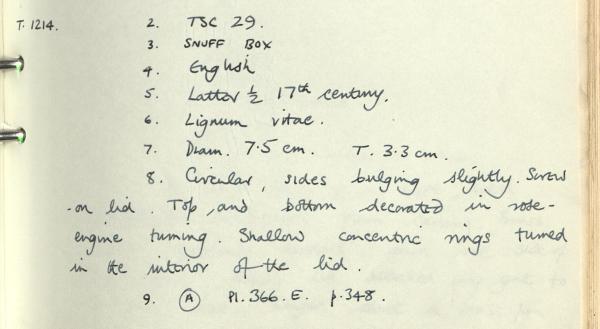 T. 1214. 2. TSC 29.
3. SNUFF BOX
4. English
5. Latter ½ 17th century.
6. Lignum vitae.
7. Diam. 7.5 cm. T. 3.3 cm.
8. Circular, sides bulging slightly. Screw
-on lid. Top, and bottom decorated in rose-
engine turning. Shallow concentric rings turned
in the interior of the lid.
9. (A) Pl. 366. E. p. 348.